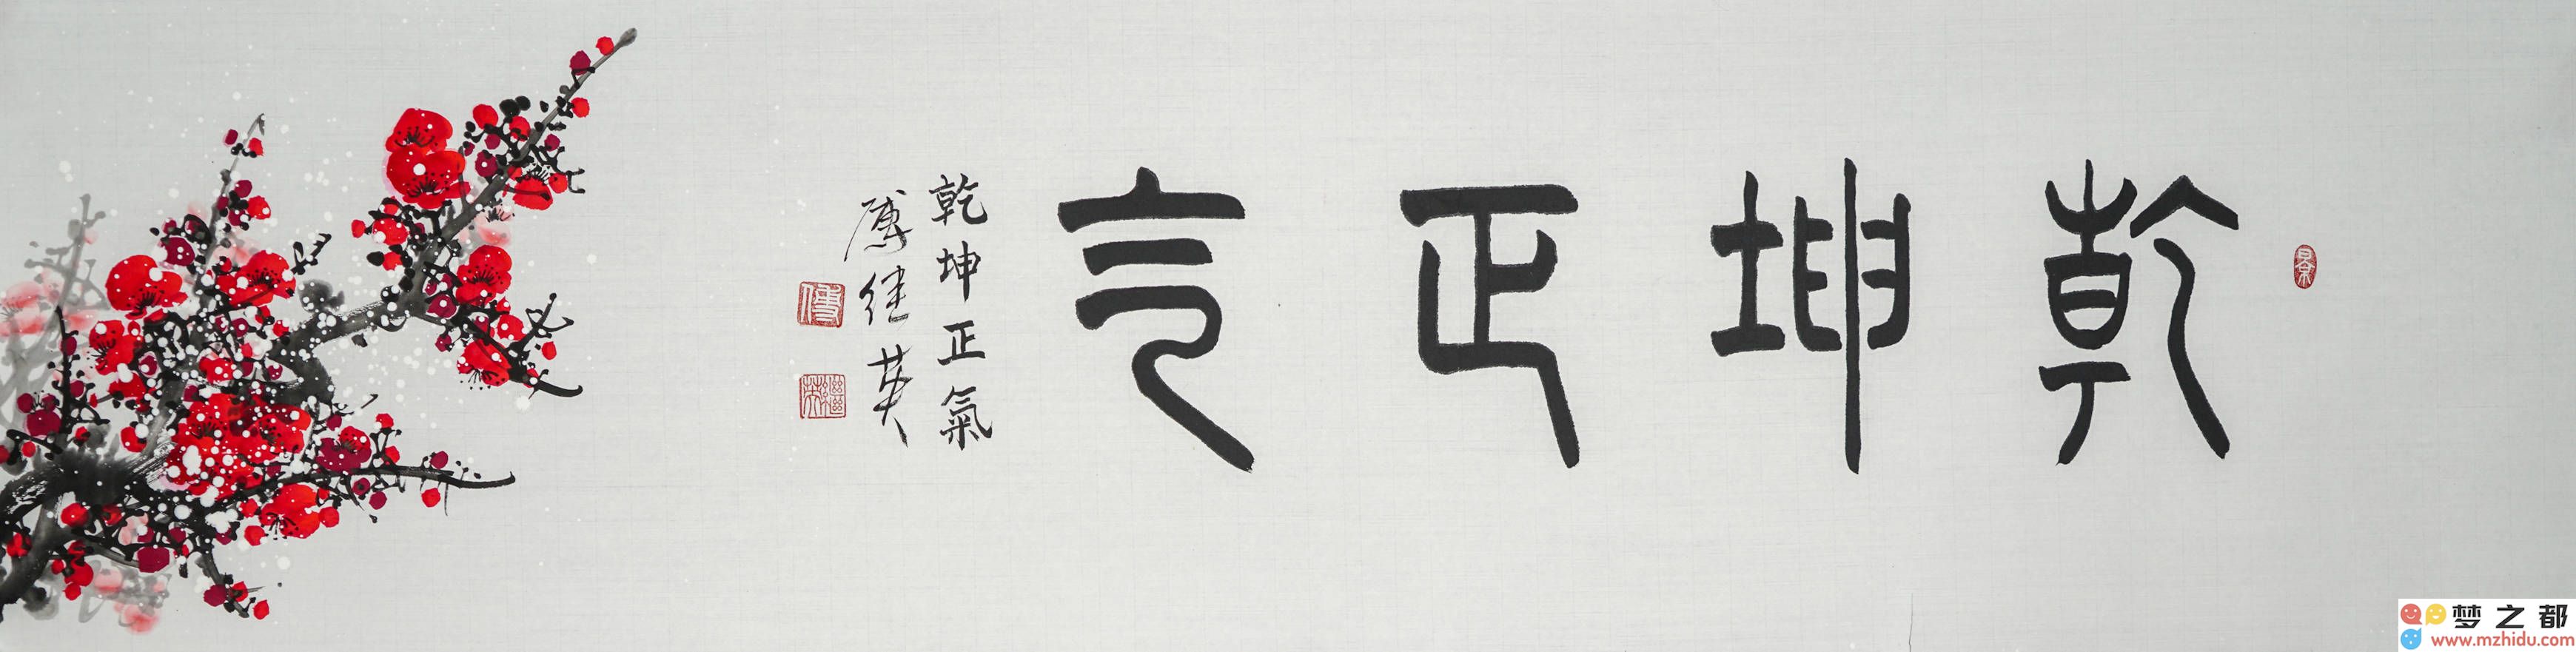 乾坤正气
乾坤正氣
傅继英
傅
继英
梦之都
www.mzhidu.com